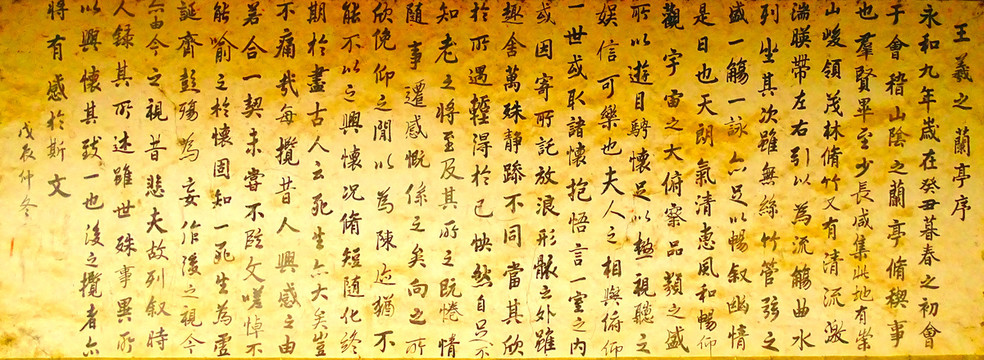 王羲之 蘭亭序
永和九年歲在癸丑暮春之初會
于會稽山陰之蘭亭脩稧事
也羣賢畢至少長咸集此地有崇
山峻領茂林脩竹又有清流激
湍暎帶左右引以為流觴曲水
列坐其次雖無絲竹管弦之
盛一觴一詠亦足以暢叙幽情
是日也天朗氣清惠風和暢仰
觀宇宙之大俯察品類之盛
所以遊目騁懷足以極視聽之
娛信可樂也夫人之相與俯仰
一世或取諸懷抱悟言一室之內
或因寄所託放浪形骸之外雖
趣舍萬殊靜躁不同當其欣
於所遇蹔得於己怏然自足不
知老之將至及其所之既惓情
隨事遷感慨係之矣向之所
欣俛仰之閒以為陳迹猶不
能不以之興懷況脩短隨化終
期於盡古人云死生亦大矣豈
不痛哉每攬昔人興感之由
若合一契未嘗不臨文嗟悼不
能喻之於懷固知一死生為虛
誕齊彭殤為妄作後之視今
亦由今之視昔悲夫故列叙時
人錄其所述雖世殊事異所
以興懷其致一也後之攬者亦
將有感於斯文
戊辰仲冬